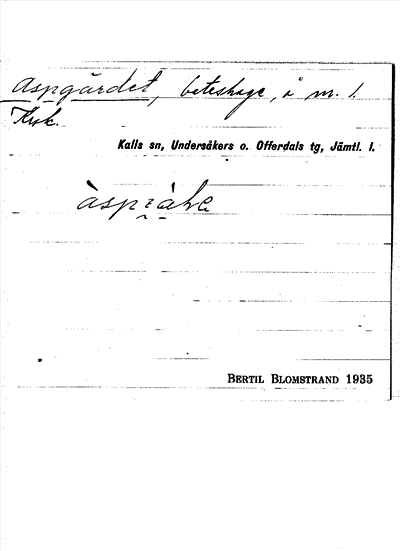 Aspgärdet, beteshage, å m. l.
Kalls sn, Undersåkers o. Offerdals tg, Jämtl. l.
BERTIL BLOMSTRAND 1935